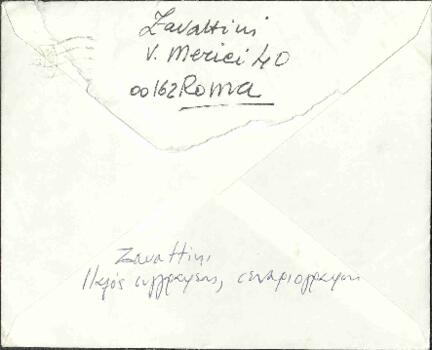 Zavattini
V. Merici 40
00162 Roma
Zavattini
συγγραφέας, σεναριογράφος